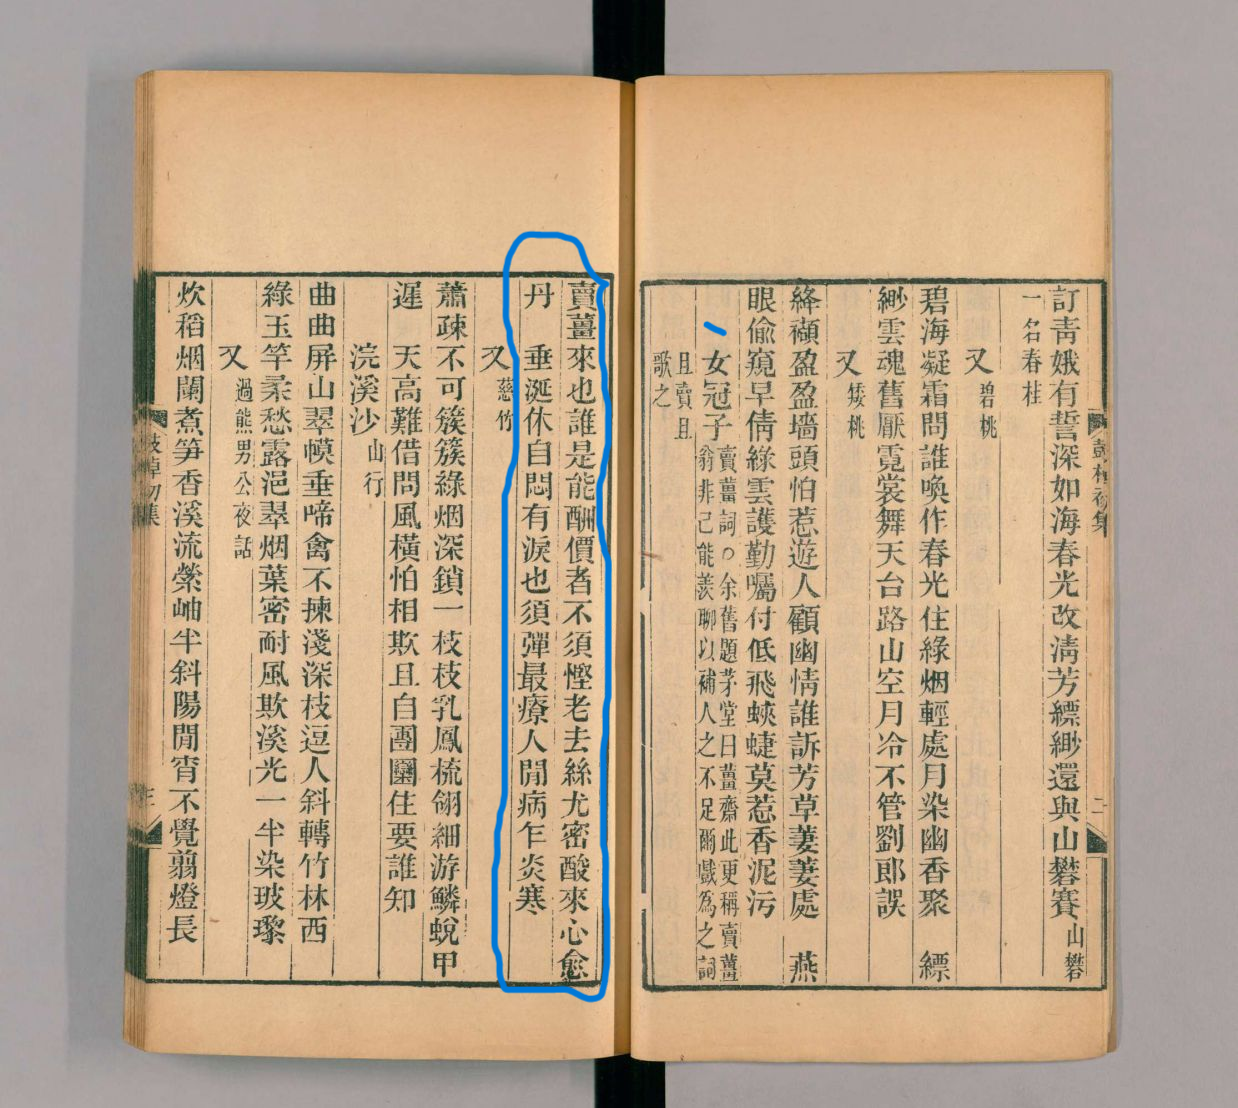 訂靑娥有誓深如海春光改淸芳縹緲還與山礬賽山礬
一名春桂
又碧桃
碧海凝霜問誰喚作春光住綠烟輕處月染幽香聚　縹
緲雲魂舊厭霓裳舞天台路山空月冷不管劉郎誤
又矮桃
絳襭盈盈墻頭怕惹遊人顧幽情誰訴芳草萋萋處　燕
眼偷窺早倩綠雲護勤囑付低飛蛺蝶莫惹香泥污
女冠子賣薑詞○余舊題茅堂曰薑齋此更稱賣薑
翁非己能羨聊以補人之不足爾戲爲之詞
且賣且
歌之
鼓棹初集
二
賣薑來也誰是能酬價者不須慳老去絲尤密酸來心愈
丹　垂涎休自悶有淚也須彈最療人閒病乍炎寒
又慈竹
蕭疎不可簇簇綠烟深鎖一枝枝乳鳳梳翎細游鱗蛻甲
遲　天高難借問風橫怕相欺且自團圞住要誰知
浣溪沙山行
曲曲屏山翠幙垂啼禽不揀淺深枝逗人斜轉竹林西
綠玉竿柔愁露浥翠烟葉密耐風欺溪光一半染玻瓈
又過熊男公夜話
炊稻烟闌煮笋香溪流縈岫半斜陽閒宵不覺翦燈長
鼓棹初集
三